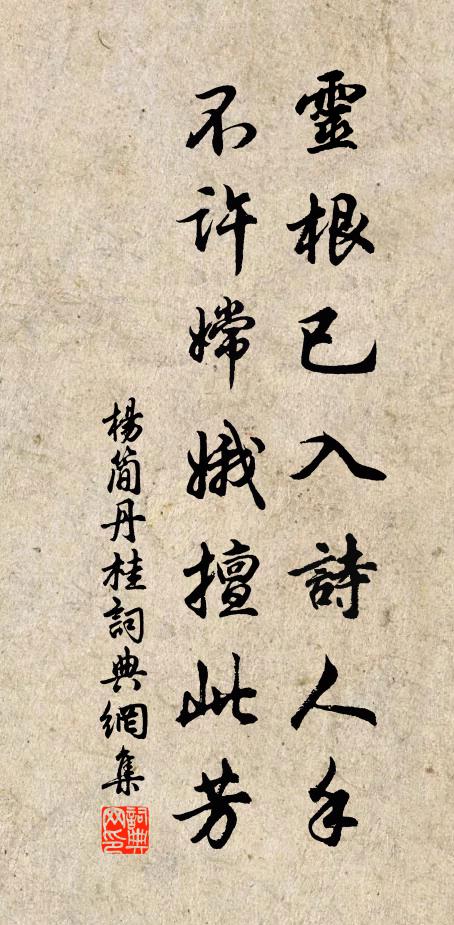 靈根已入詩人手
不許嫦娥擅此芳
楊簡丹桂詞典網集
詞典網印